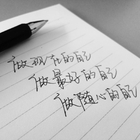 做现在的自己
做最好的自己
做随心的自己